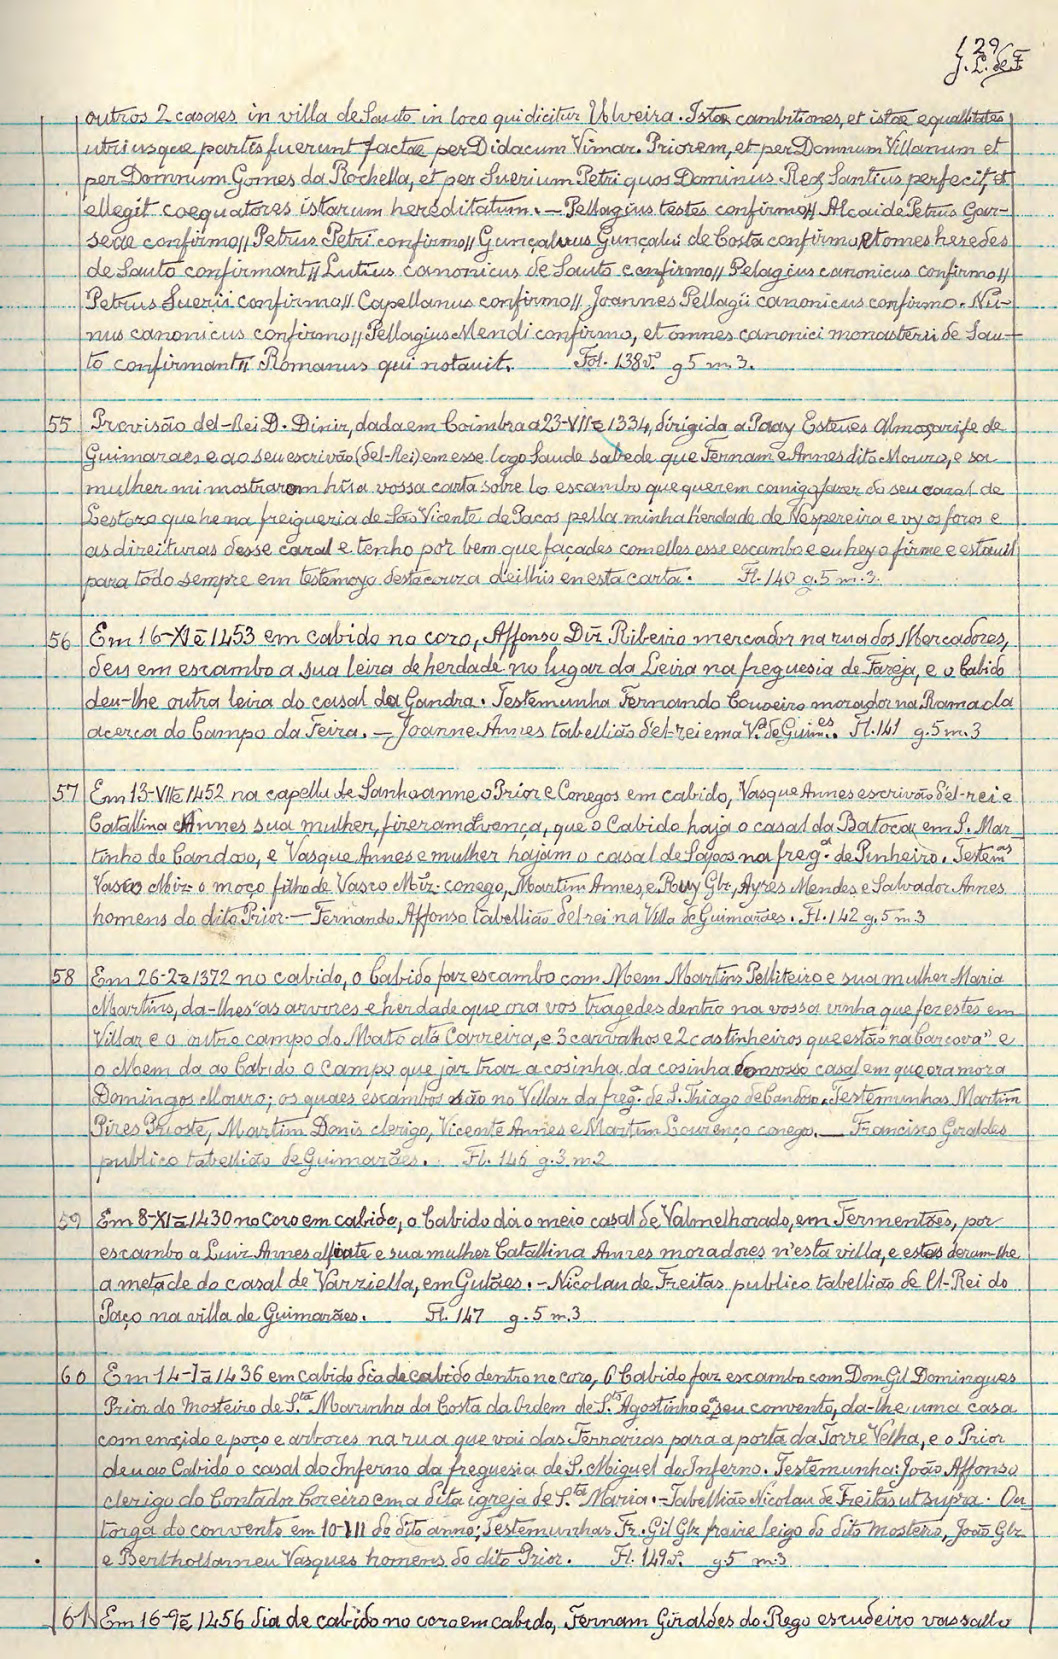 29
J. L. de F.
outros 2 casaes in villa de Sauto in loco qui dicitur Ulveira. Istae cambitiones, et istae equalitates
utriusque partis fuerunt factae per Didacum Vimar. Priorem, et per Domnum Villanum et
per Domnum Gomes da Rochella, et per Suerium Petri quos Dominus Rex Santius perfecit, et
ellegit coequatores istarum hereditatum. — Pellagius testes confirmo // Alcaide Petrus Gar-
seae confirmo // Petrus Petri confirmo // Gunçalvus Gunçalui de Costa confirmo, et omes heredes
de Sauto confirmant // Lutius canonicus de Sauto confirmo // Pelagius canonicus confirmo //
Petrus Suerii confirmo // Capellanus confirmo // Joannes Pellagii canonicus confirmo. Nu-
nus canonicus confirmo // Pellagius Mendi confirmo, et omnes canonici monasterii de Sau-
to confirmant // Romanus qui notauit. Fol. 138 v. g 5 m. 3.
55 Provisão del-Rei D. Diniz, dada em Coimbra a 23-VII-e 1334, dirigida a Paay Esteves Almoxarife de
Guimaraes e ao seu escrivão (del-Rei) em esse logo Saude sabede que Fernam e Annes dito Mouro, e sa
mulher mi mostrarom hũa vossa carta sobre lo escambo que querem comigo fazer do seu cazal de
Lestozo que he na freigueria de São Vicente de Pacos pella minha herdade de Nespereira e vy os foros e
as direituras desse cazal e tenho por bem que façades com elles esse escambo e eu hey o firme e estauil
para todo sempre em testemoyo desta couza dei lhis en esta carta. Fl. 140 g. 5 m. 3.
56 Em 16-XI-e 1453 em cabido no coro, Affonso Diz Ribeiro mercador na rua dos Mercadores,
deu em escambo a sua leira de herdade no lugar da Leira na freguesia de Fareja, e o Cabido
deu-lhe outra leira do casal da Gandra. Testemunha Fernando Couseiro morador na Ramada
acerca do Campo da Feira. — Joanne Annes tabellião d'el-rei em a V.ª de Guim.es Fl. 141 g. 5 m. 3
57 Em 13-VII-e 1452 na capella de Sanhoanne o Prior e Conegos em cabido, Vasque Annes escrivão d'el-rei e
Catallina Annes sua mulher, fizeram avença, que o Cabido haja o casal da Batoca em S. Mar-
tinho de Candoso, e Vasque Annes e mulher hajam o casal de Lagoos na freg.ª de Pinheiro. Testem.as
Vasco Miz o moço filho de Vasco Miz conego, Martim Annes, e Ruy Glz, Ayres Mendes e Salvador Annes
homens do dito Prior. — Fernando Affonso tabellião del rei na Villa de Guimarães. Fl. 142 g. 5 m. 3
58 Em 26-2-e 1372 no cabido, o Cabido faz escambo com Mem Martins Pelliteiro e sua mulher Maria
Martins, da-lhes "as arvores e herdade que ora vos tragedes dentro na vossa vinha que fezestes em
Villar e o outro campo do Mato atá Carreira, e 3 carvalhos e 2 castinheiros que estão na barcova" e
o Mem da ao Cabido o Campo que jaz traz a cosinha da cosinha do vosso casal em que ora mora
Domingos Mouro; os quaes escambos são no Villar da freg.ª de S. Thiago de Candoso. Testemunhas Martim
Pires Prioste, Martim Donis clerigo, Vicente Annes e Martim Lourenço conego. — Francisco Geraldes
publico tabellião de Guimarães. Fl. 146 g. 3 m. 2
59 Em 8-XI-e 1430 no coro em cabido, o Cabido dá o meio casal de Valmelhorado, em Fermentões, por
escambo a Luiz Annes alfaiate e sua mulher Catallina Annes moradores n'esta villa, e estes deram-lhe
a metade do casal de Varziella, em Gulães. — Nicolau de Freitas publico tabellião de El-Rei do
Paço na villa de Guimarães. Fl. 147 g. 5 m. 3
60 Em 14-I-e 1436 em cabido dia de cabido dentro no coro, o Cabido faz escambo com Dom Gil Domingues
Prior do Mosteiro de S.ta Marinha da Costa da Ordem de S.to Agostinho e seu convento, da-lhe uma casa
com enxido e poço e arbores na rua que vai das Ferrarias para a porta da Torre Velha, e o Prior
deu ao Cabido o casal do Inferno da freguesia de S. Miguel do Inferno. Testemunha: João Affonso
clerigo do Contador Coreiro em a dita igreja de S.ta Maria. — Tabellião Nicolau de Freitas ut supra. Ou-
torga do convento em 10-VII do dito anno; Testemunhas Fr. Gil Glz fraire leigo do dito mosteiro, João Glz
e Berthollameu Vasques homens do dito Prior. Fl. 149 v. g 5 m. 3
61 Em 16-9-e 1456 dia de cabido no coro em cabido, Fernam Giraldes do Rego escudeiro vassallo